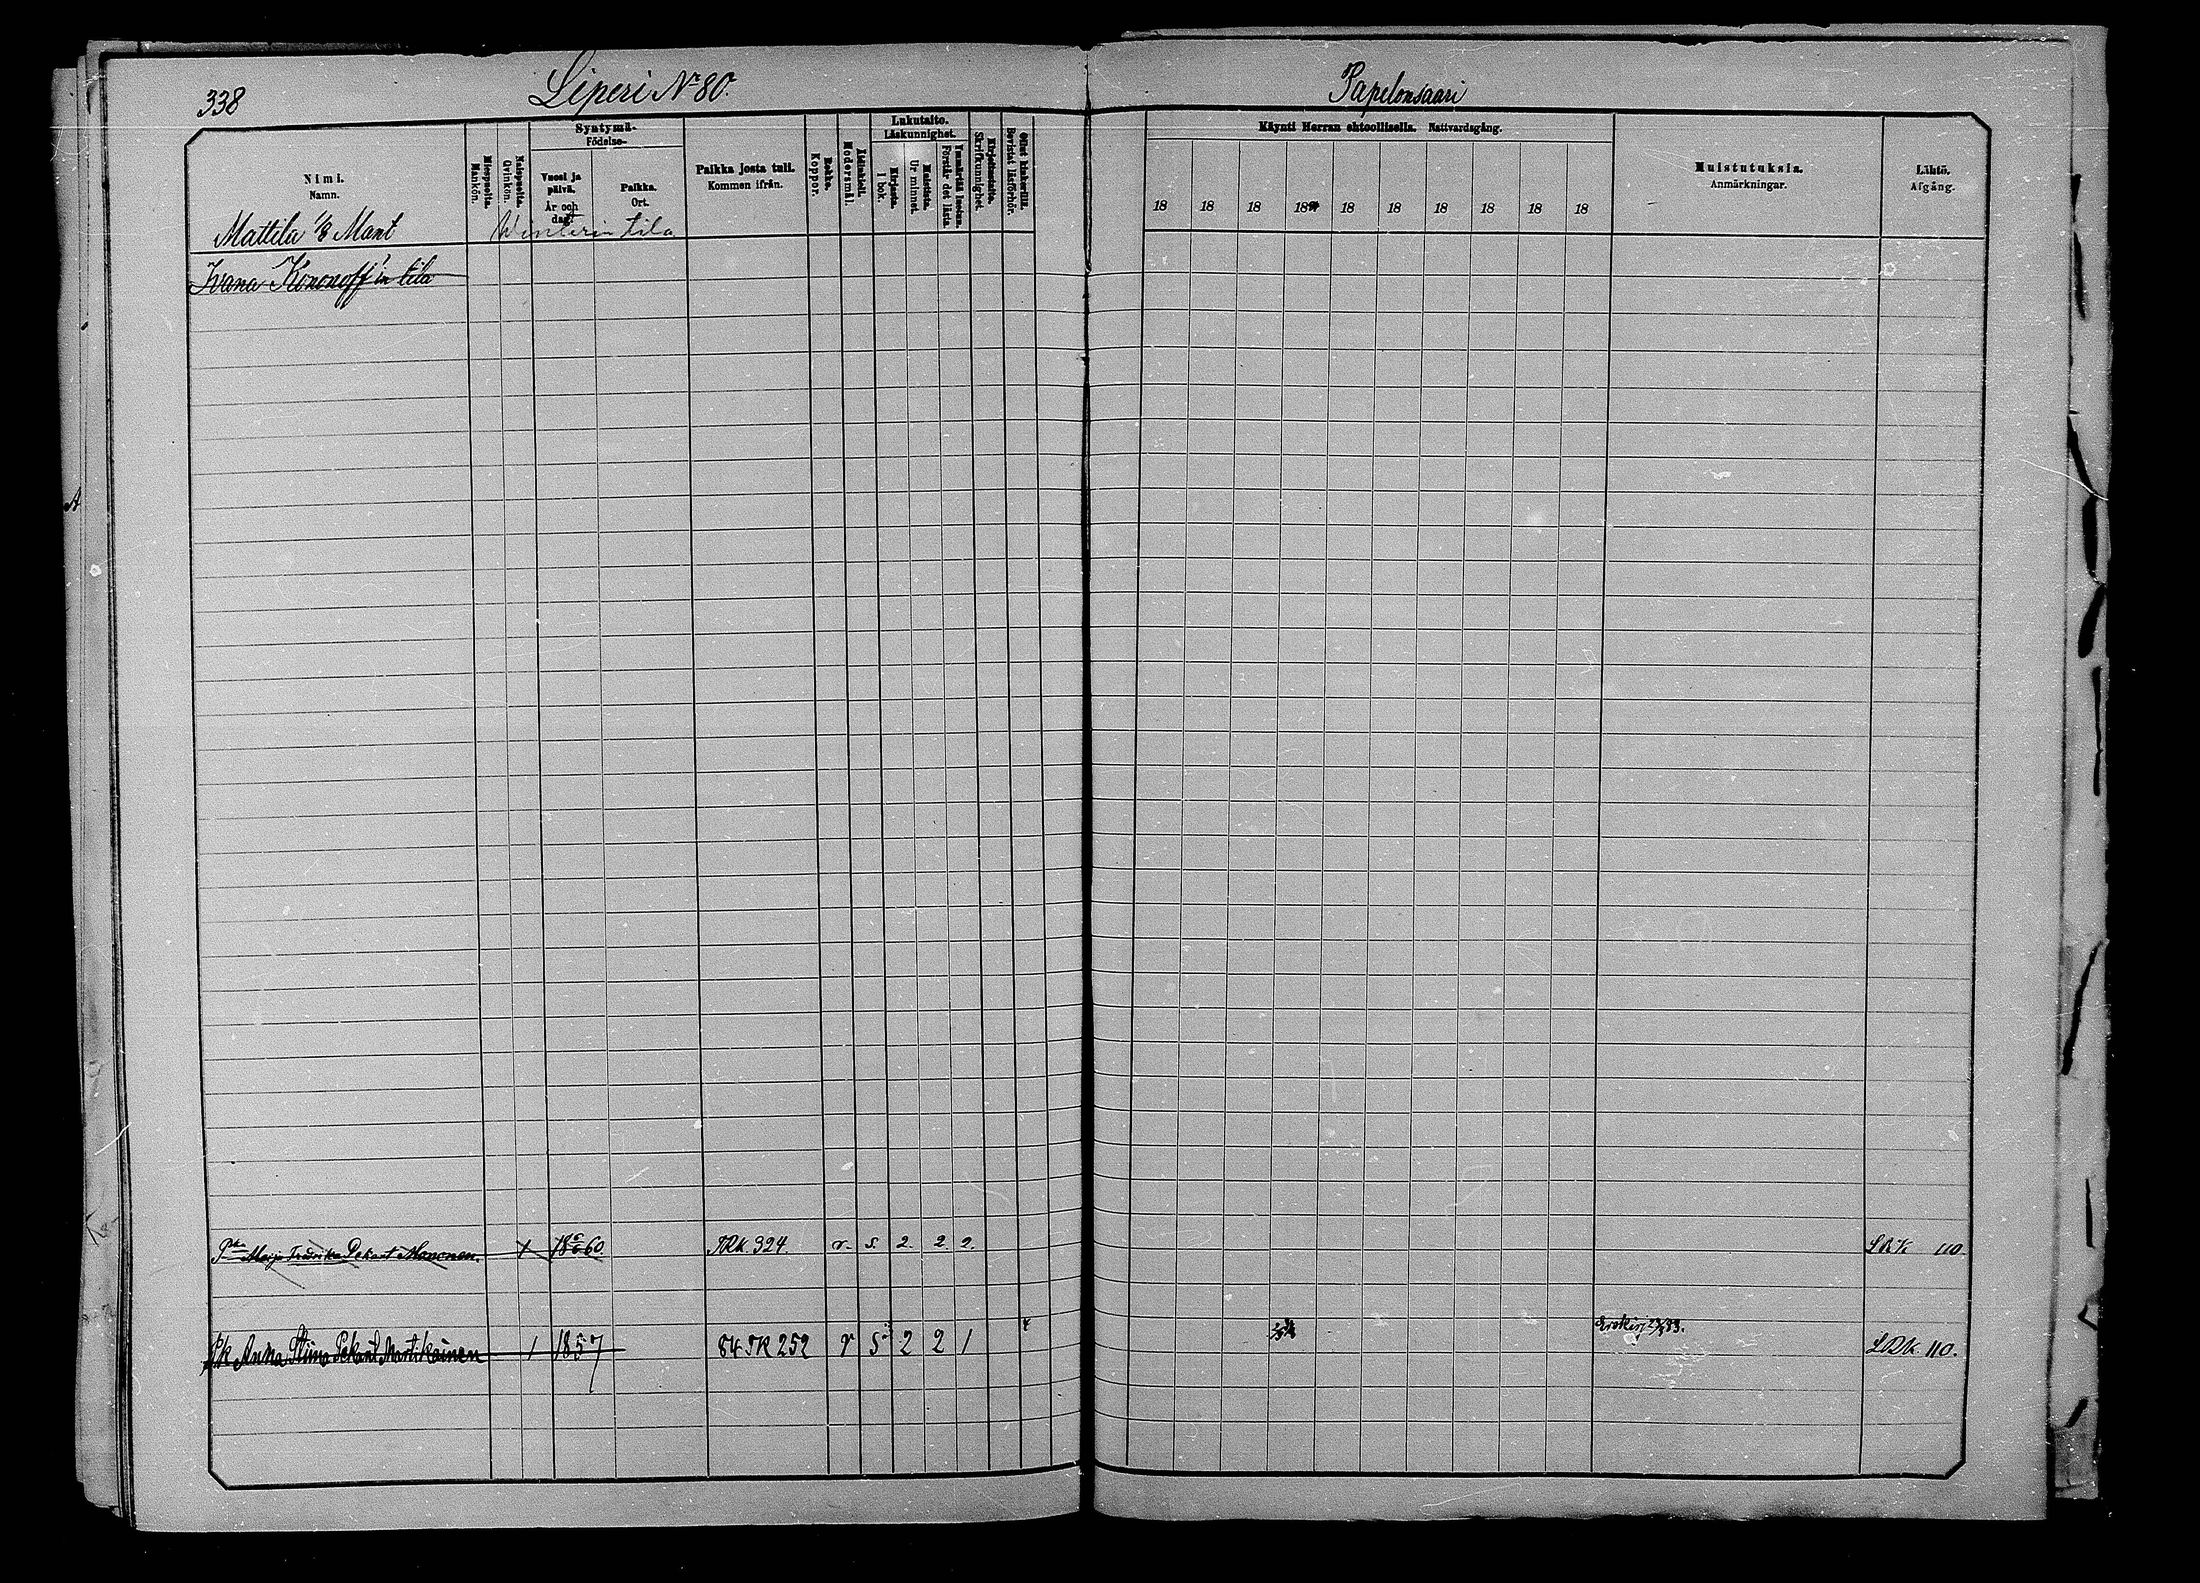 338
Liperi No 80.
Papelonsaari
Nimi.
Namn.
Miespuolia.
Mankön.
Naispuolia.
Qvinkön.
Syntymä-
Födelse-
Vuosi ja päivä.
År och dag.
Paikka.
Ort.
Paikka josta tuli.
Kommen ifrån.
Rokko.
Koppor.
Äidinkieli.
Modersmål.
Lukutaito.
Läskunnighet.
Kirjasta.
I bok.
Muistista.
Ur minnet.
Ymmärtää luetun.
Förstår det lästa.
Kirjoitustaito.
Skrifkunnighet.
Ollut kinkerillä.
Bevistat läsförhör.
Käynti Herran ehtoollisella. Nattvardsgång.
18 18 18 18 18 18 18 18 18 18
Muistutuksia.
Anmärkningar.
Lähtö.
Afgång.
Mattila 1/8 Mant Winterin tila
Ivana Kononoff'in tila
Maija Fredrika Pekant. Mononen. 1 18 60 RK. 324. r. s. 2. 2. 2. 110
Pk Anna Stiina Pekant. Martikainen 1 1857 84 RK 252 r s 2 2 1 LRK. 110.